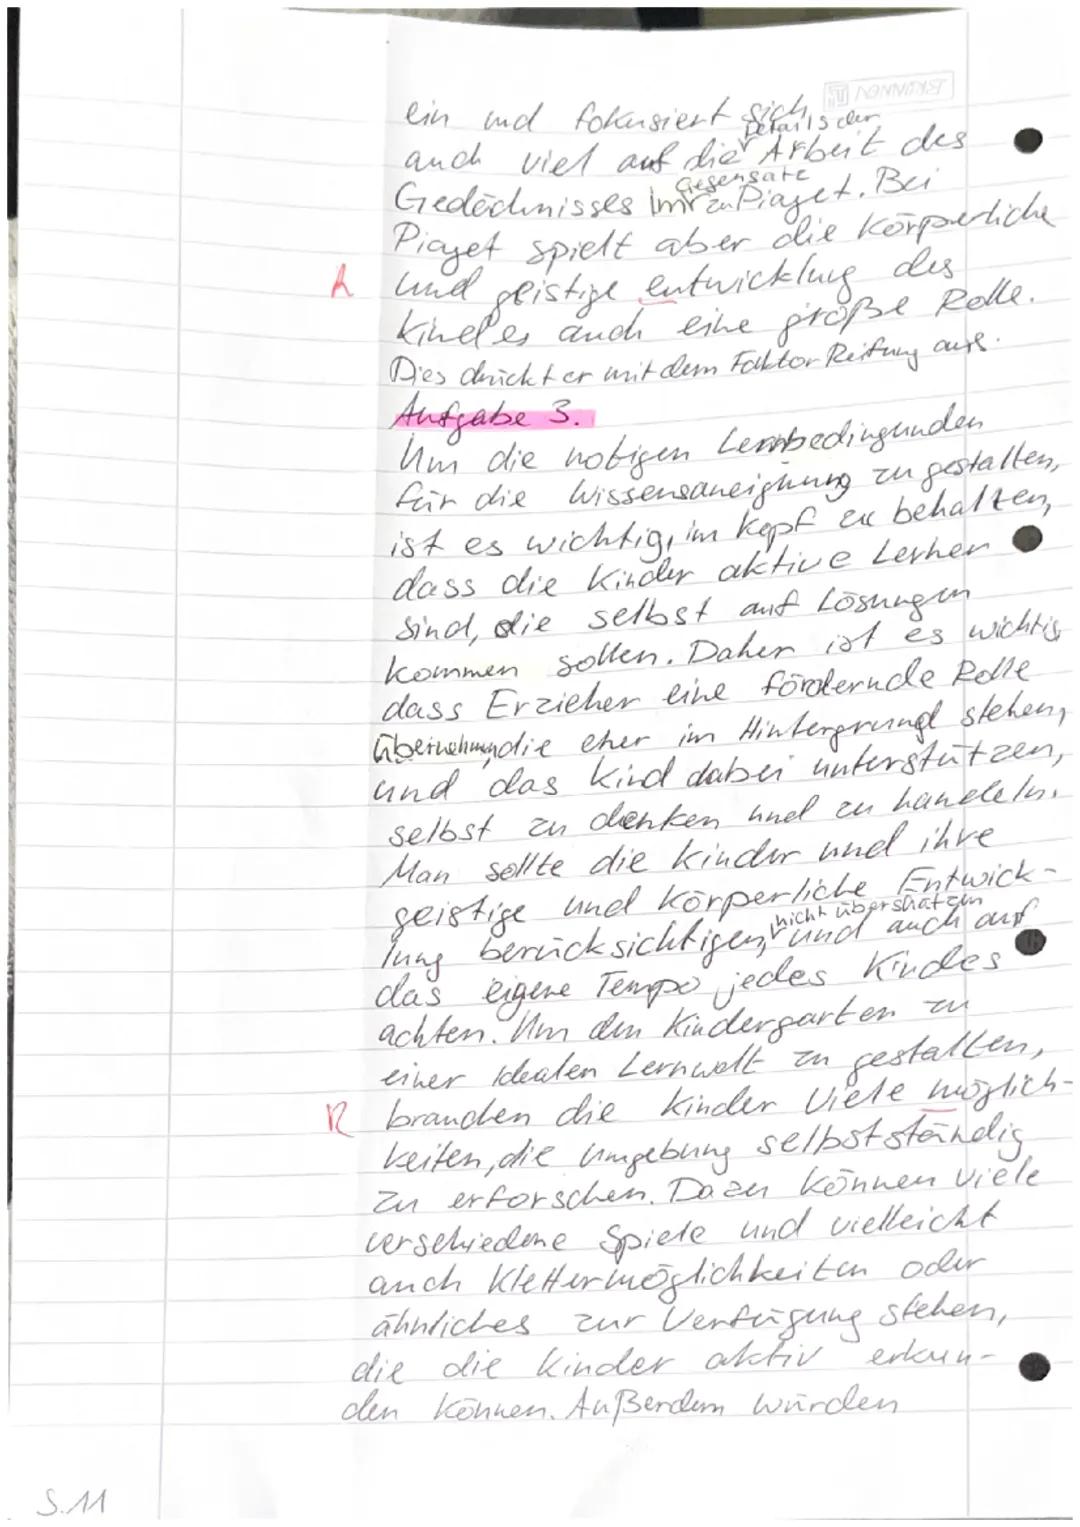 BRUNNEN
ein und fokusiert sich
auch viel auf die Details der Arbeit des
Gedächnisses im Gegensatz zu Piaget. Bei
Piaget spielt aber die körperliche
R und geistige entwicklung des
Kindes auch eine große Rolle.
Dies drückt er mit dem Faktor Reifung aus.
Aufgabe 3.
Um die notigen Lernbedingunden
für die Wissensaneignung zu gestalten,
ist es wichtig, im Kopf zu behalten,
dass die Kinder aktive Lerner
sind, die selbst auf Lösungen
kommen sollen. Daher ist es wichtig
dass Erzieher eine fördernde Rolle
übernehmen, die eher im Hintergrund stehen,
und das Kind dabei unterstützen,
selbst zu denken und zu handeln.
Man sollte die Kinder und ihre
geistige und körperliche Entwick-
lung berücksichtigen, nicht überschätzen und auch auf
das eigene Tempo jedes Kindes
achten. Um den Kindergarten zu
einer Idealen Lernwelt zu gestalten,
R brauchen die Kinder viele möglich-
keiten, die Umgebung selbstständig
zu erforschen. Dazu können viele
verschiedene Spiele und vielleicht
auch Klettermöglichkeiten oder
ähnliches zur Verfügung stehen,
die die Kinder aktiv erkun-
den können. Außerdem würden
S. 11